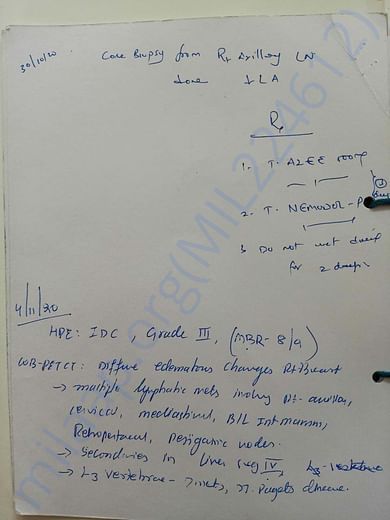 30/10/20
Core Biopsy from Rt Axillary LN
done ↓ LA
Rx
1. T. AZEE 500mg
2. T. NEMUWOL-P
3. Do not wet
for 2 days
4/11/20
HPE: IDC, Grade III, (MBR-8/9)
WB-PETCT: Diffuse edematous changes Rt Breast
→ multiple lymphatic mets involving Rt-axillar,
cervical, mediastinal, B/L Int mammary,
Retropectoral, Perigastric nodes.
→ Secondaries in liver seg IV,
→ L3 vertebrae - ? mets, ?? Pagets disease.
milaap.org(MIL224612)